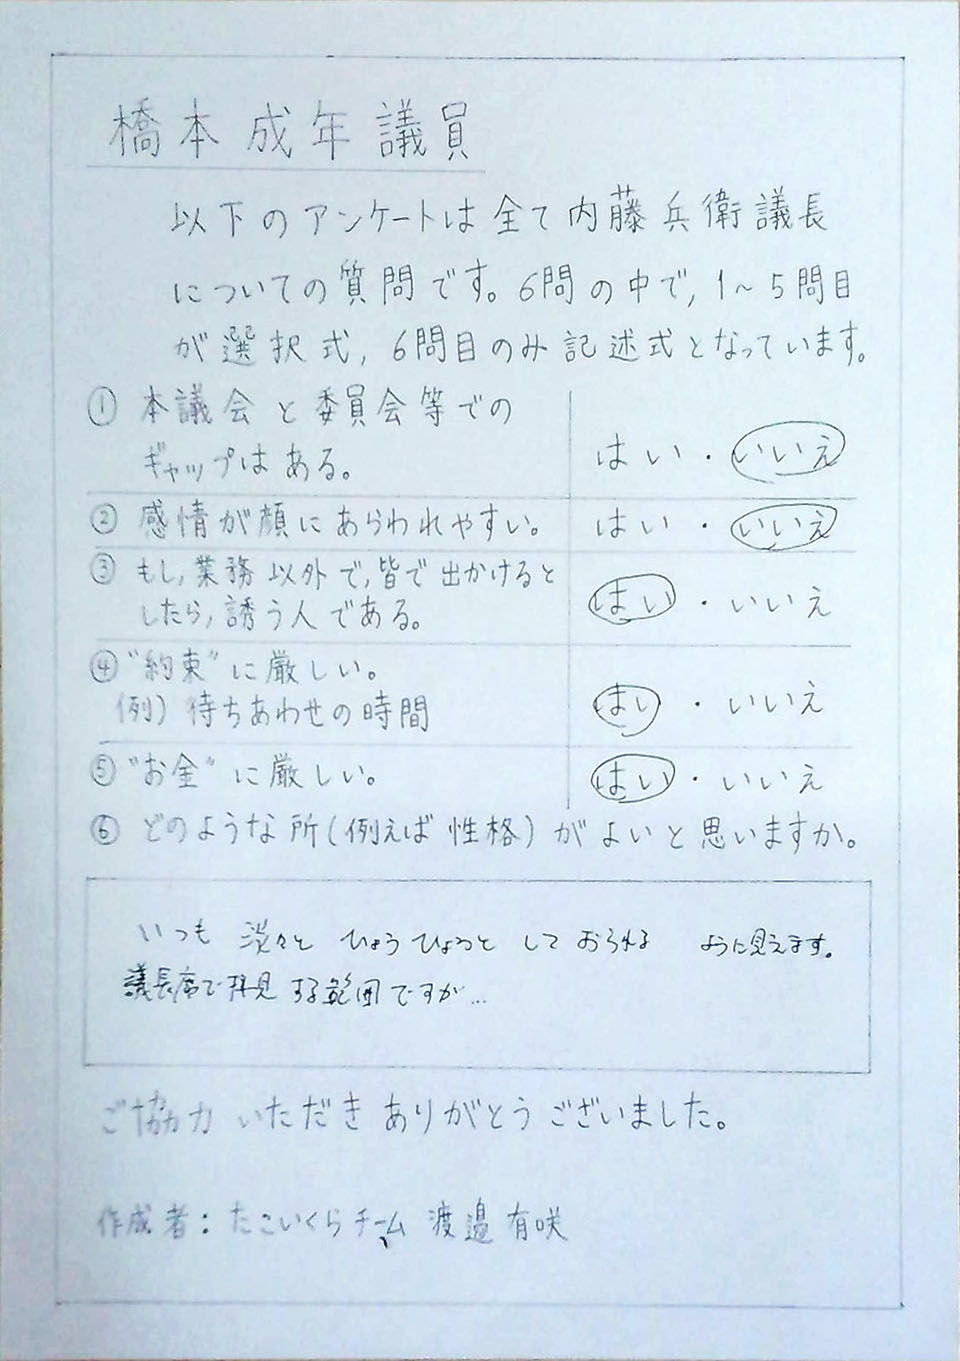 橋本成年議員
以下のアンケートは全て内藤兵衛議長
についての質問です。6問の中で,1～5問目
が選択式,6問目のみ記述式となっています。
① 本議会と委員会等での
ギャップはある。 はい・いいえ
② 感情が顔にあらわれやすい。 はい・いいえ
③ もし,業務以外で,皆で出かけると
したら,誘う人である。 はい・いいえ
④ "約束"に厳しい。
例) 待ちあわせの時間 はい・いいえ
⑤ "お金"に厳しい。 はい・いいえ
⑥ どのような所(例えば性格)がよいと思いますか。
いつも 淡々と ひょうひょうと して おられる ように見えます。
議長席で拝見する範囲ですが…
ご協力いただきありがとうございました。
作成者:たこいくらチーム 渡邉有咲